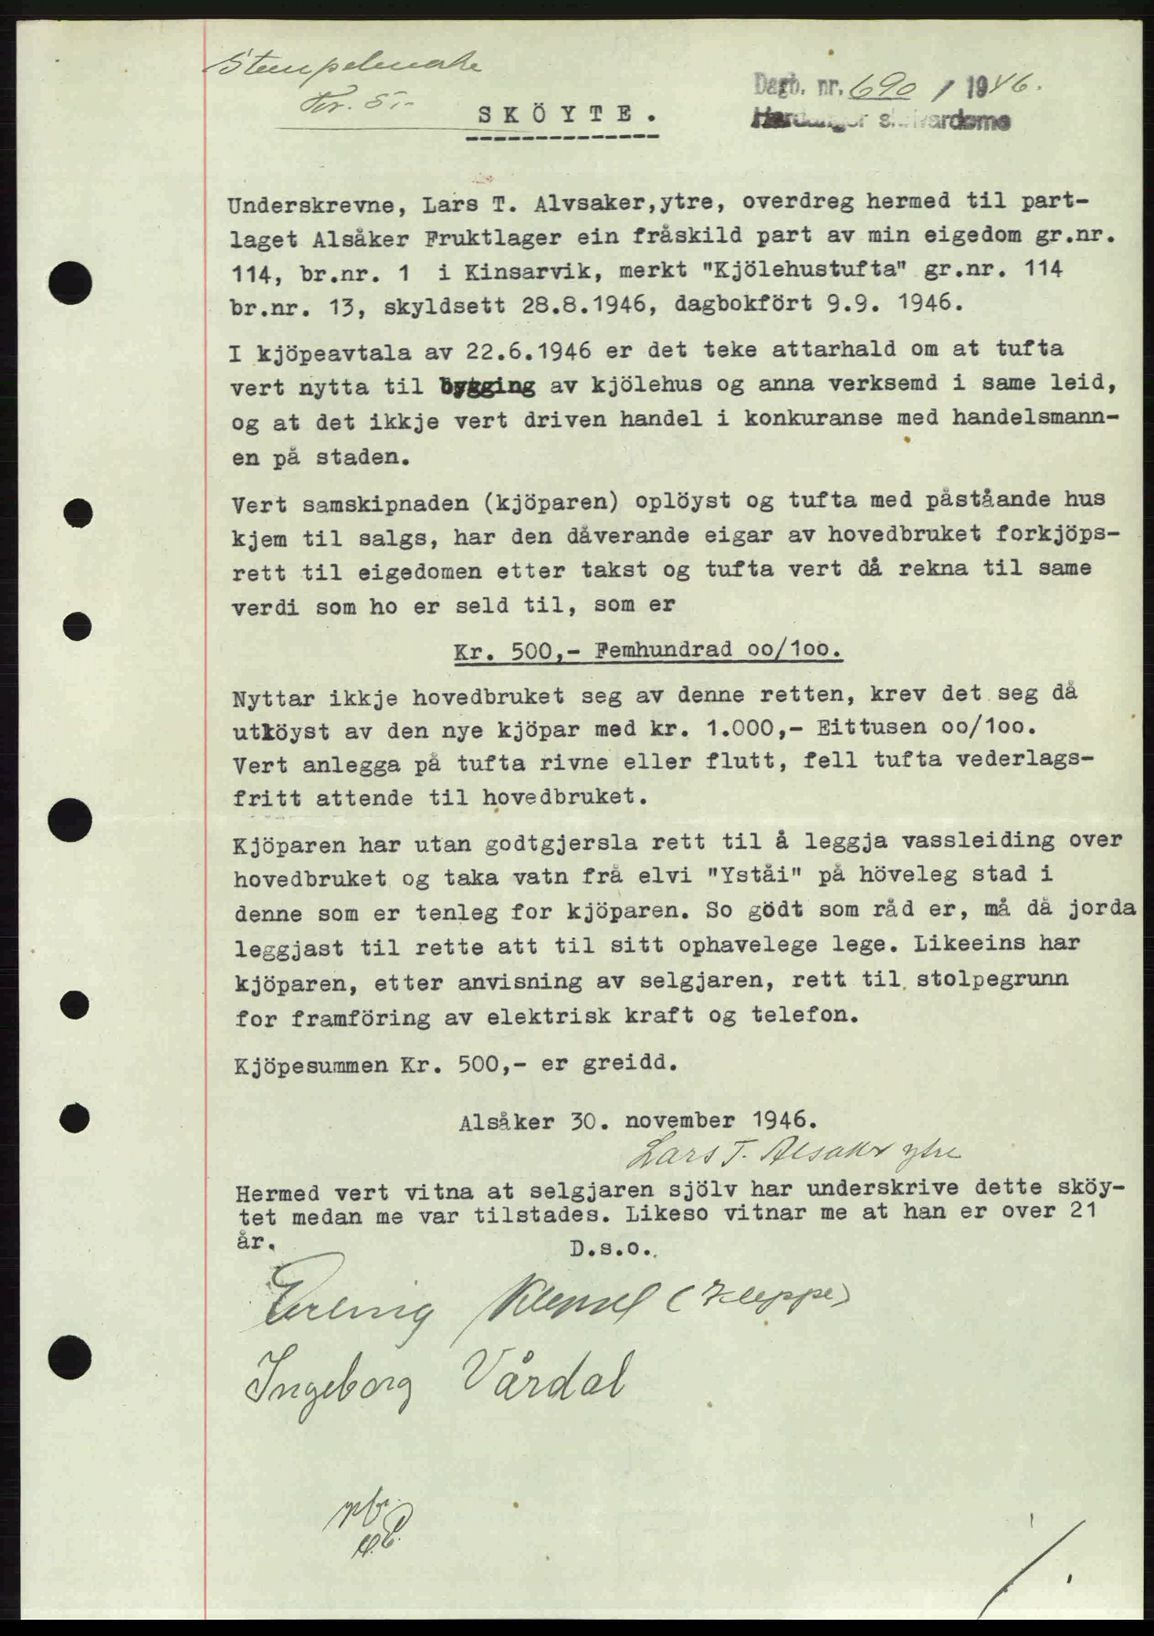 Stempelmerke
Kr. 5.-
Dagb. nr. 690 / 1946.
SKÖYTE.
Underskrevne, Lars T. Alvsaker,ytre, overdreg hermed til part-
laget Alsåker Fruktlager ein fråskild part av min eigedom gr.nr.
114, br.nr. 1 i Kinsarvik, merkt "Kjölehustufta" gr.nr. 114
br.nr. 13, skyldsett 28.8.1946, dagbokfört 9.9. 1946.
I kjöpeavtala av 22.6.1946 er det teke attarhald om at tufta
vert nytta til bygging av kjölehus og anna verksemd i same leid,
og at det ikkje vert driven handel i konkuranse med handelsmann-
en på staden.
Vert samskipnaden (kjöparen) oplöyst og tufta med påståande hus
kjem til salgs, har den dåverande eigar av hovedbruket forkjöps-
rett til eigedomen etter takst og tufta vert då rekna til same
verdi som ho er seld til, som er
Kr. 500,- Femhundrad oo/1oo.
Nyttar ikkje hovedbruket seg av denne retten, krev det seg då
utlöyst av den nye kjöpar med kr. 1.000,- Eittusen oo/1oo.
Vert anlegga på tufta rivne eller flutt, fell tufta vederlags-
fritt attende til hovedbruket.
Kjöparen har utan godtgjersla rett til å leggja vassleiding over
hovedbruket og taka vatn frå elvi "Yståi" på höveleg stad i
denne som er tenleg for kjöparen. So gödt som råd er, må då jorda
leggjast til rette att til sitt ophavelege lege. Likeeins har
kjöparen, etter anvisning av selgjaren, rett til stolpegrunn
for framföring av elektrisk kraft og telefon.
Kjöpesummen Kr. 500,- er greidd.
Alsåker 30. november 1946.
Lars T. Alsaker ytre
Hermed vert vitna at selgjaren sjölv har underskrive dette sköy-
tet medan me var tilstades. Likeso vitnar me at han er over 21
år.
D.s.o.
Erling (Kleppe)
Ingeborg Vårdal